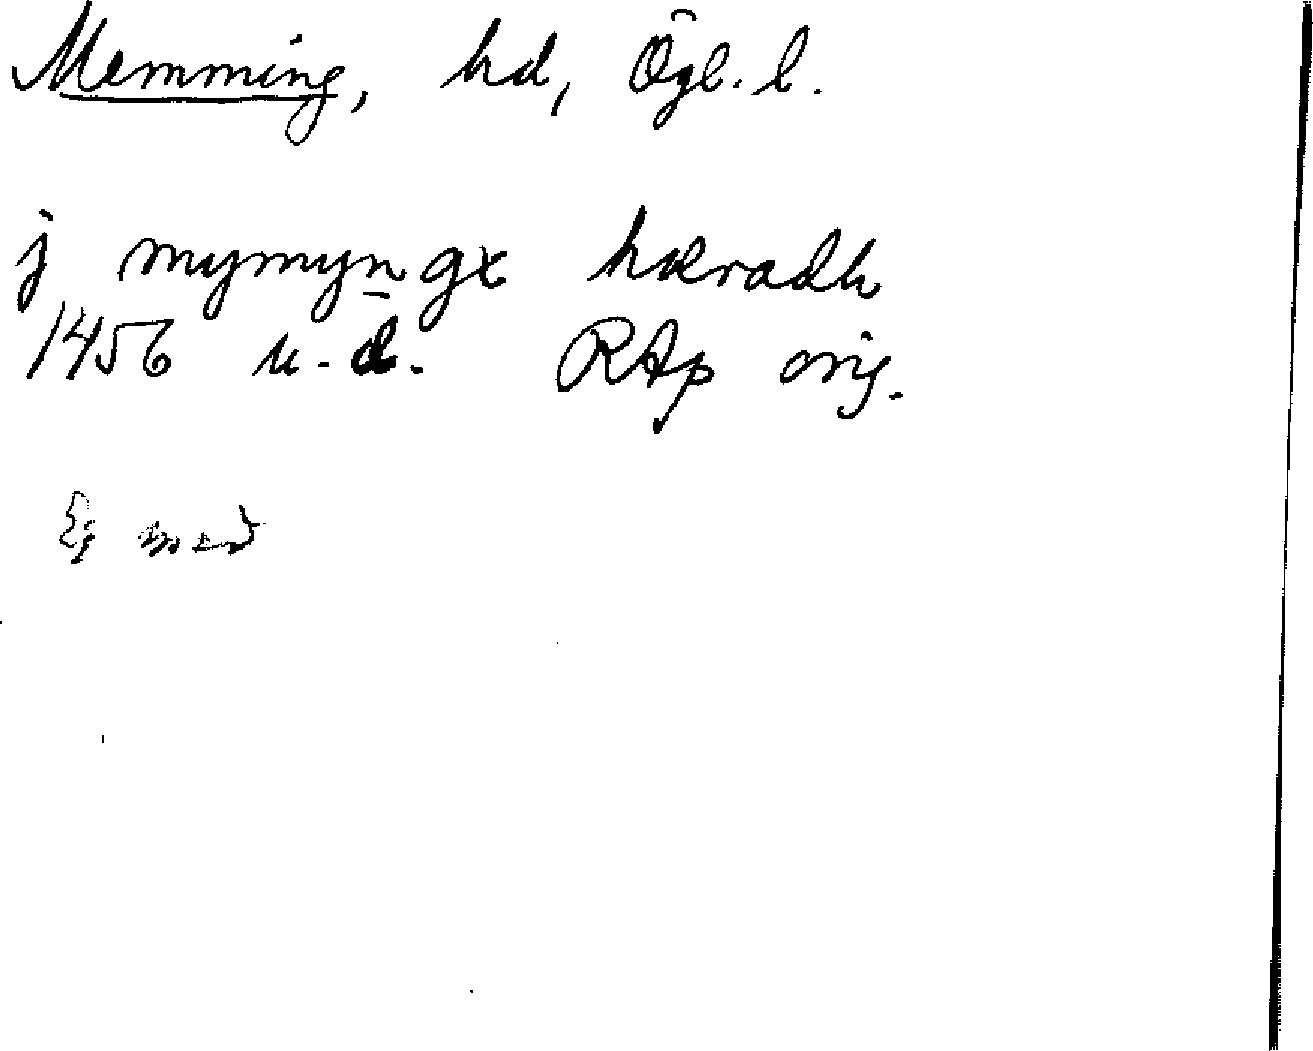 Memming, hd, Ögl. l.
j mymyngx hæradh
1456 u.d. RAp orig.
Ej med